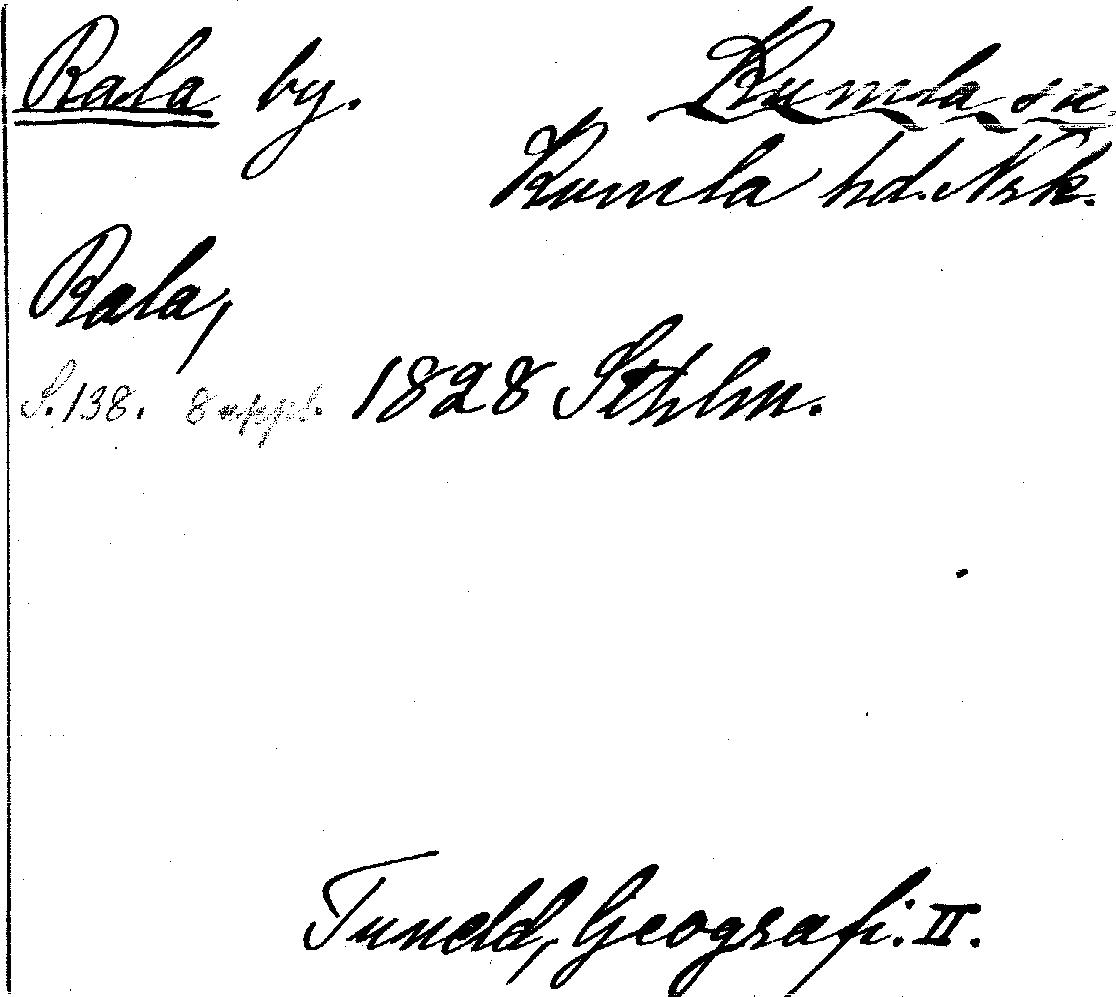 Rala by. Kumla sn
Kumla hd. Nrk.
Rala,
S. 138. 8 uppl. 1828 Sthlm.
Tuneld, Geografi. II.